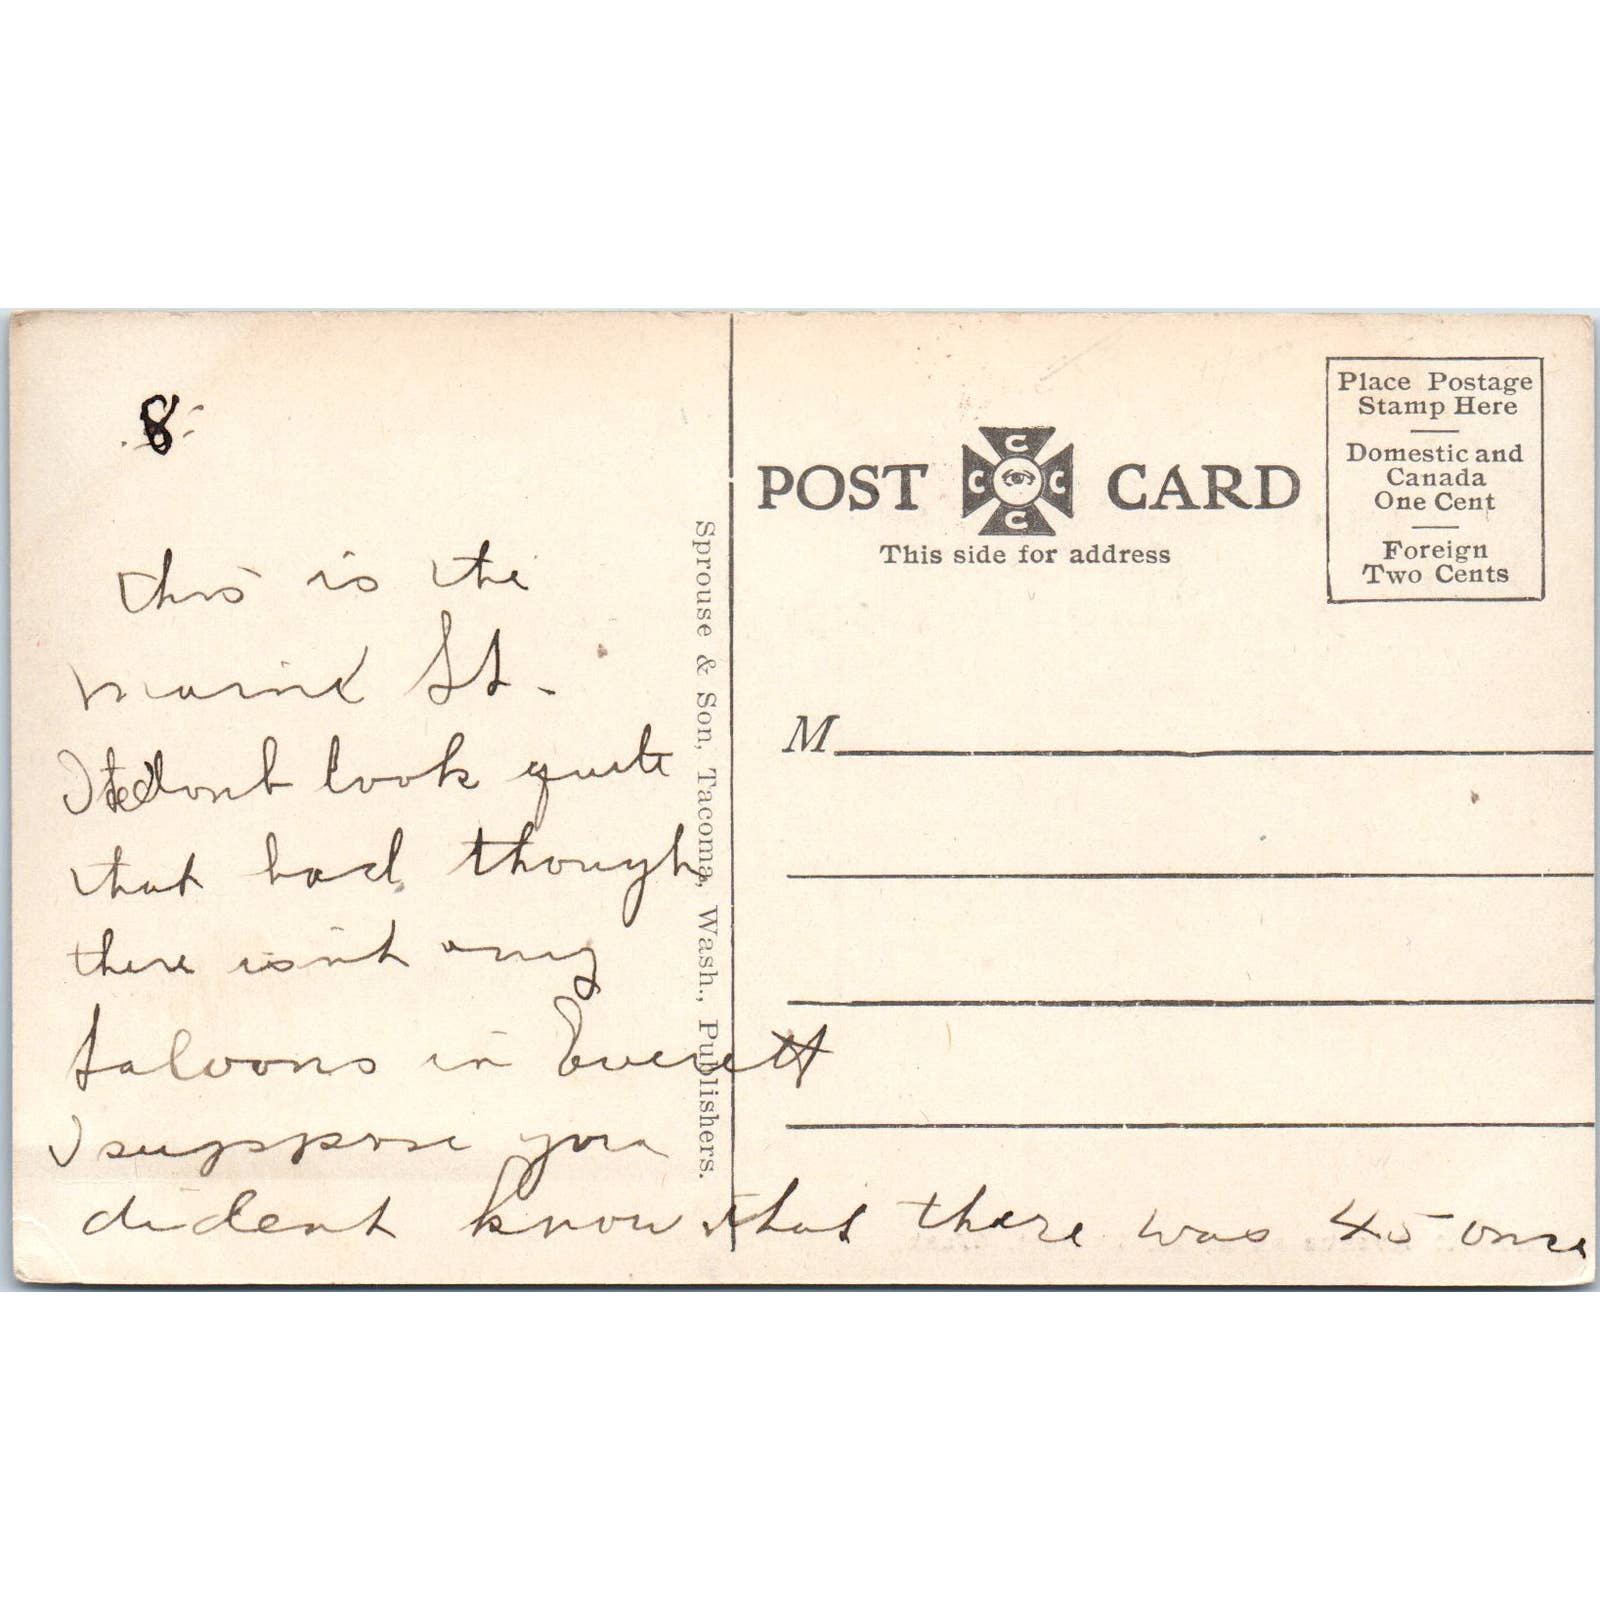 8
this is the
marine St.
It dont look quite
that bad though
there isnt any
saloons in Everett
I suppose you
dident know that there was 45 once
Sprouse & Son, Tacoma, Wash., Publishers.
POST CARD
C
C C
C
This side for address
Place Postage
Stamp Here
Domestic and
Canada
One Cent
Foreign
Two Cents
M